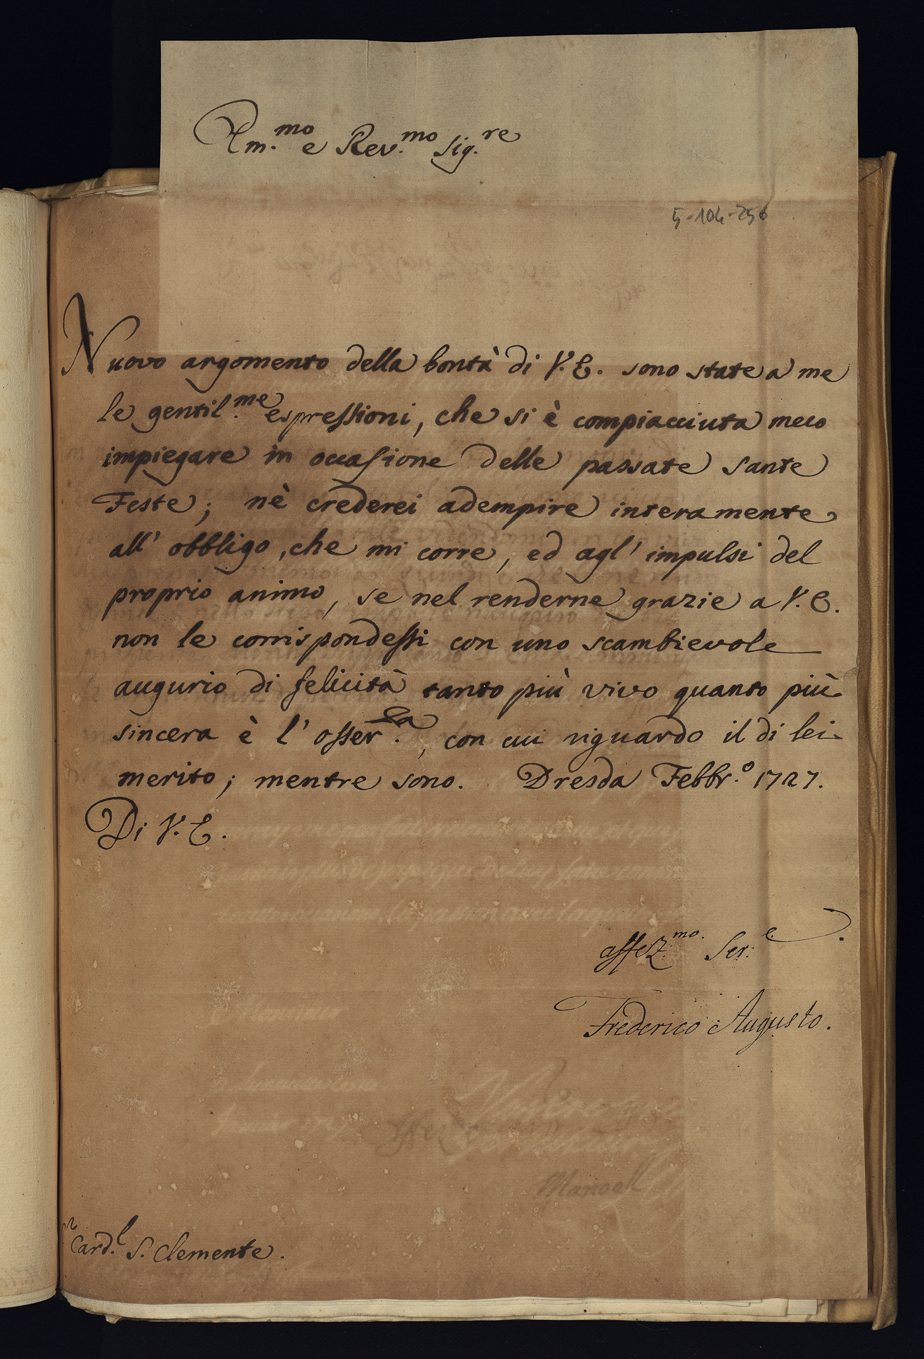 Em.mo e Rev.mo Sig.re
5-104-256
Nuovo argomento della bontà di V.E. sono state a me
le gentil.me espressioni, che si è compiacciuta meco
impiegare in occasione delle passate sante
Feste; nè crederei adempire interamente
all' obbligo, che mi corre, ed agl' impulsi del
proprio animo, se nel renderne grazie a V.E.
non le corrispondessi con uno scambievole
augurio di felicità tanto più vivo quanto più
sincera è l' osser.za, con cui riguardo il di lei
merito; mentre sono. Dresda Febbr.o 1727.
Di V.E.
affez.mo Ser.e
Frederico Augusto.
Card.l S. Clemente.